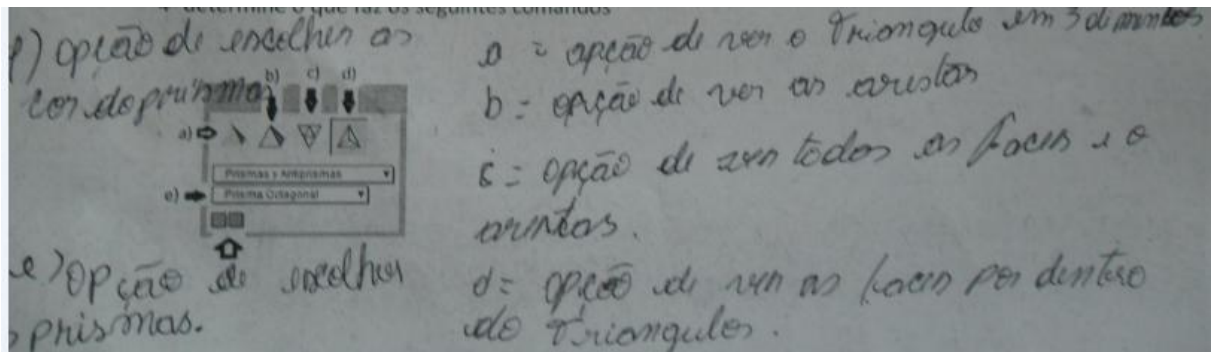 determine o que faz os seguintes comandos
f) opção de escolher as
cor do prisma
b) c) d)
a)
Prismas y Antiprismas
e) Prisma Octagonal
e) opção de escolher
prismas.
a = opção de ver o Triangulo em 3 dimentoes
b = opção de ver as arestas
c = opção de ver todos as faces e o
arestas.
d = opção de ver as faces por dentro
do Triangulos.